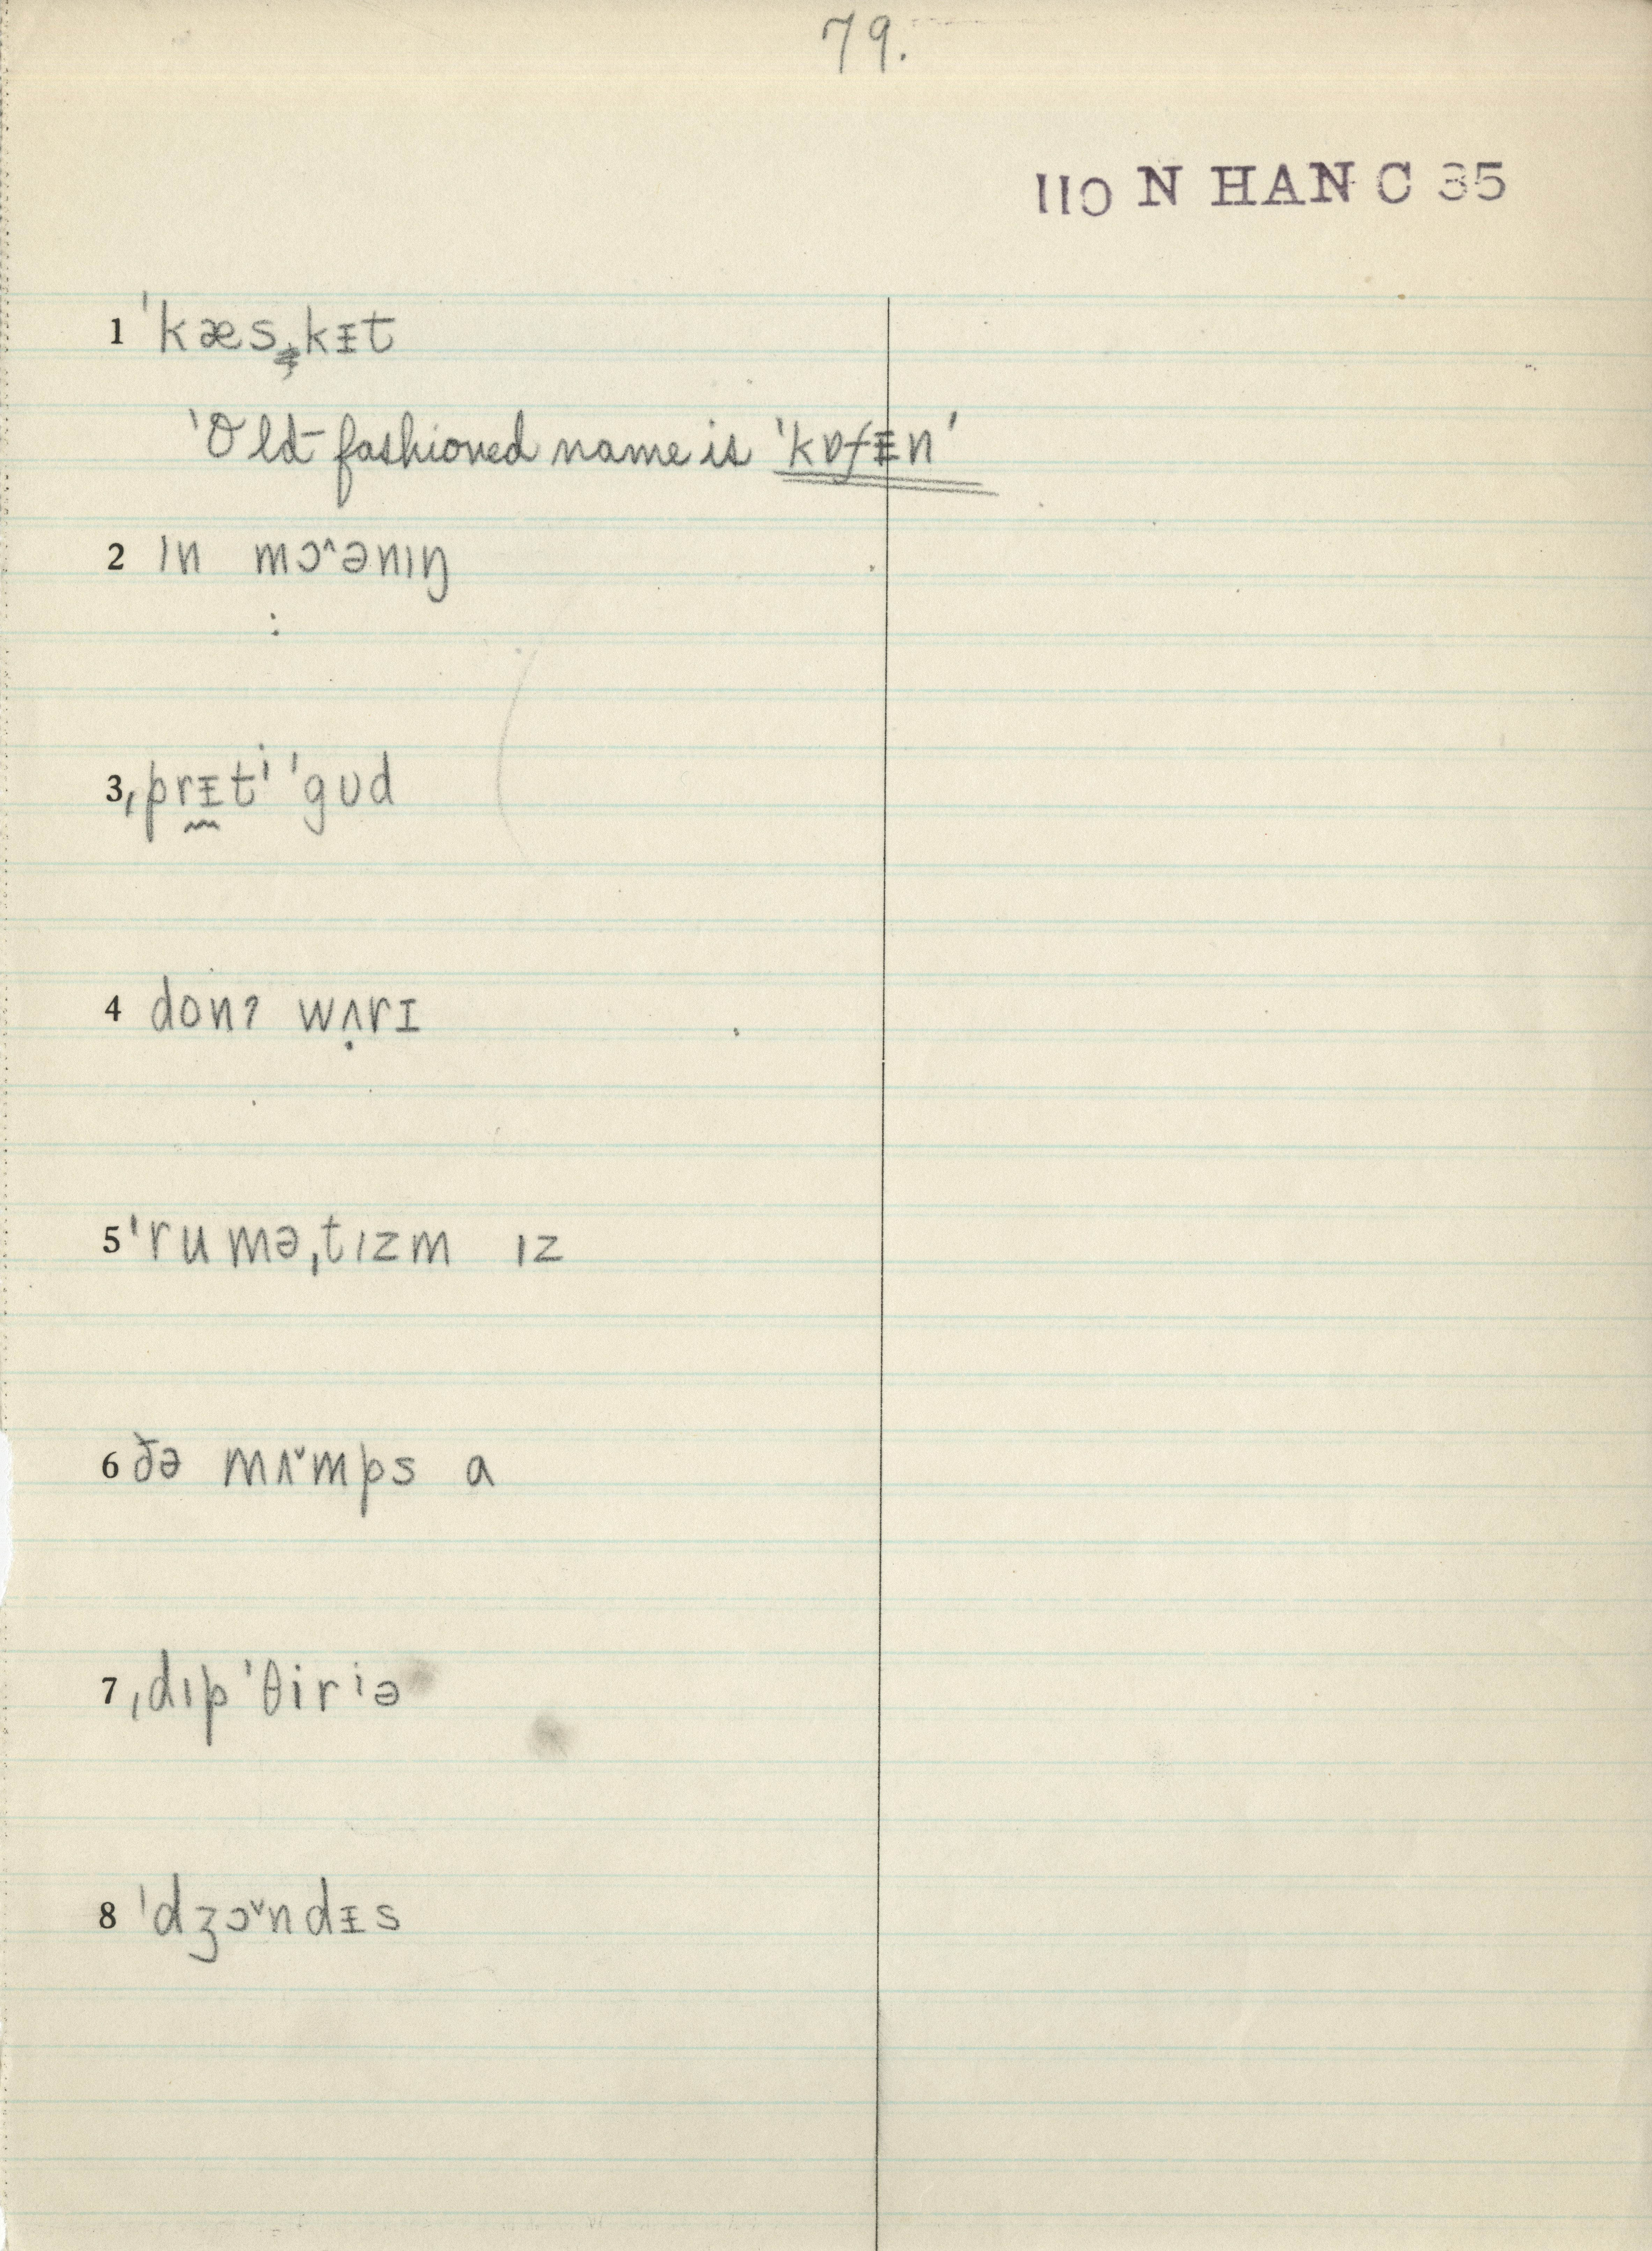 79.
110 N HAN C 35
1 ˈkæskᵻt
'Old-fashioned name is 'kɒfᵻn'
2 ɪn mɔ^ənɪŋ
3 ˌprᵻtⁱ ˈgʊd
4 donʔ wʌ̣rɪ
5 ˈruməˌtɪzm ɪz
6 ðə mʌˇmps a
7 ˌdɪpˈθirⁱə
8 ˈdʒɔˇndᵻs